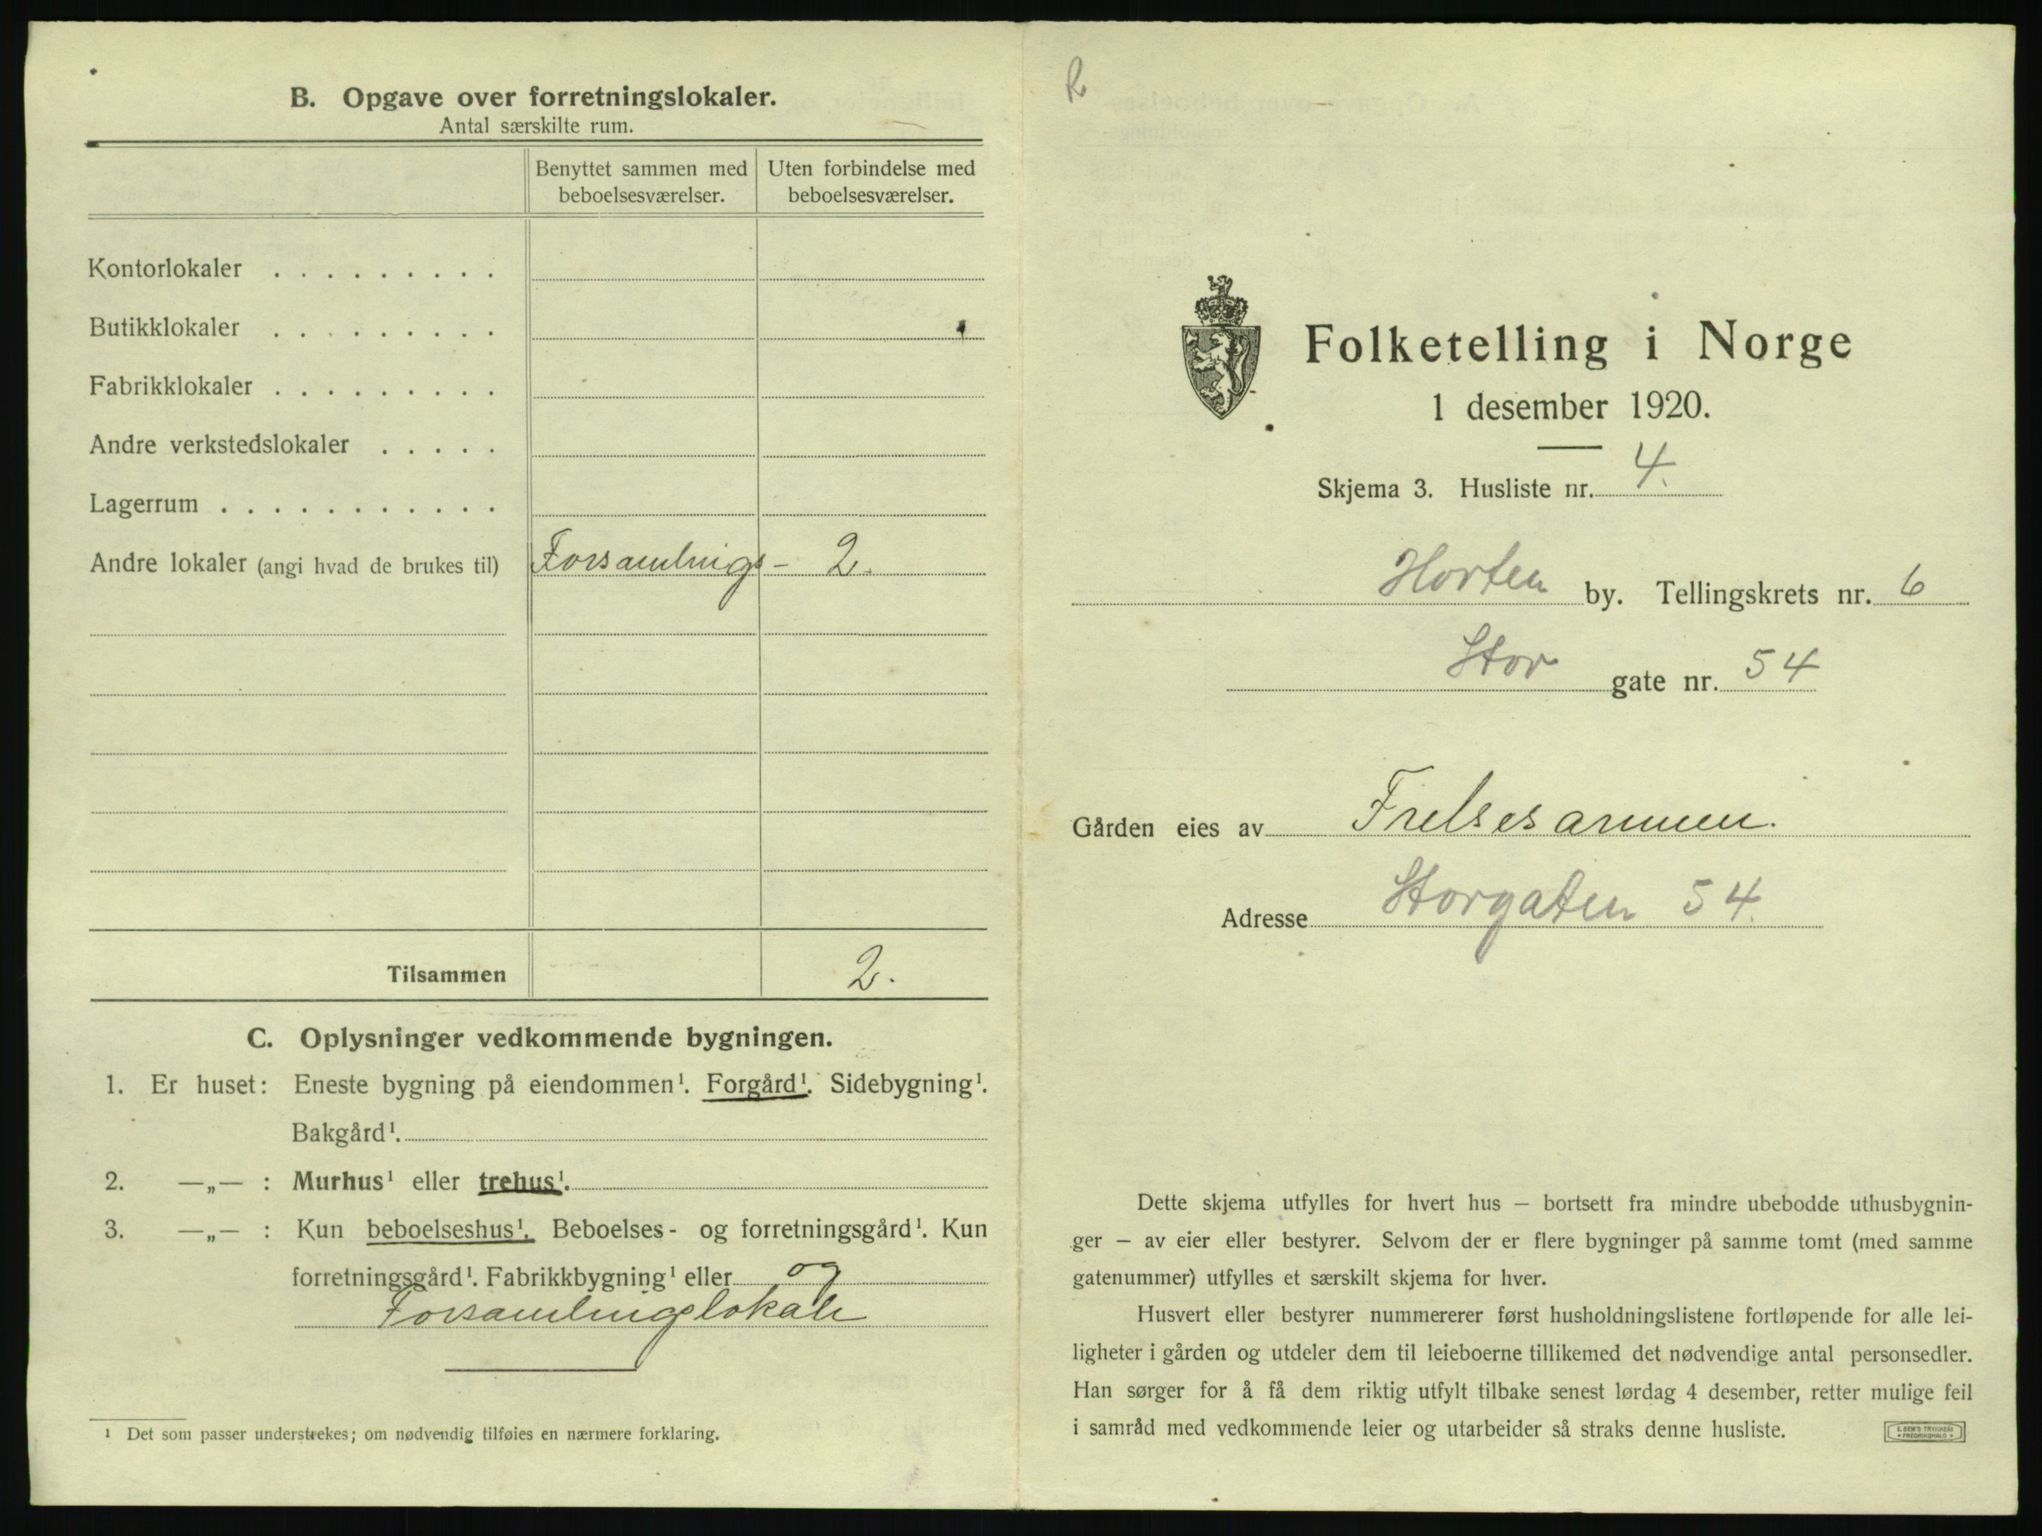 B. Opgave over forretningslokaler.
Antal særskilte rum.
Benyttet sammen med beboelsesværelser.
Uten forbindelse med beboelsesværelser.
Kontorlokaler . . . . . . . . .
Butikklokaler . . . . . . . . .
Fabrikklokaler . . . . . . . . .
Andre verkstedslokaler . . . . .
Lagerrum . . . . . . . . . . .
Andre lokaler (angi hvad de brukes til) Forsamlings- 2.
Tilsammen 2.
C. Oplysninger vedkommende bygningen.
1. Er huset: Eneste bygning på eiendommen¹. Forgård¹. Sidebygning¹.
Bakgård¹.
2. —„— : Murhus¹ eller trehus¹.
3. —„— : Kun beboelseshus¹. Beboelses- og forretningsgård¹. Kun
forretningsgård¹. Fabrikkbygning¹ eller og
Forsamlingslokale
¹ Det som passer understrekes; om nødvendig tilføies en nærmere forklaring.
Folketelling i Norge
1 desember 1920.
Skjema 3. Husliste nr. 4.
Horten by. Tellingskrets nr. 6
Stor gate nr. 54
Gården eies av Frelsesarmeen.
Adresse Storgaten 54.
Dette skjema utfylles for hvert hus — bortsett fra mindre ubebodde uthusbygnin-
ger — av eier eller bestyrer. Selvom der er flere bygninger på samme tomt (med samme
gatenummer) utfylles et særskilt skjema for hver.
Husvert eller bestyrer nummererer først husholdningslistene fortløpende for alle lei-
ligheter i gården og utdeler dem til leieboerne tillikemed det nødvendige antal personsedler.
Han sørger for å få dem riktig utfylt tilbake senest lørdag 4 desember, retter mulige feil
i samråd med vedkommende leier og utarbeider så straks denne husliste.